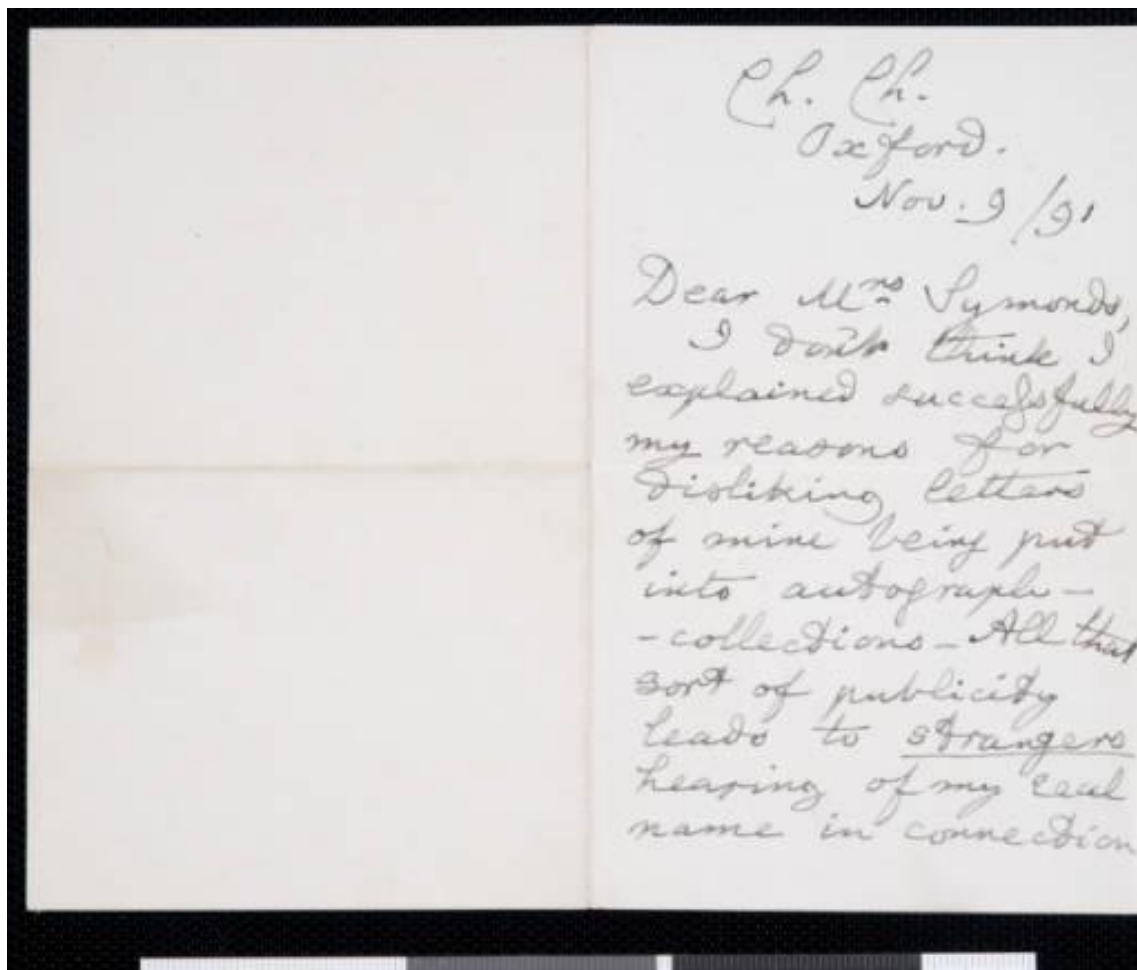 Ch. Ch.
Oxford.
Nov. 9/91
Dear Mrs Symonds,
I don't think I
explained successfully
my reasons for
disliking letters
of mine being put
into autograph-
-collections - All that
sort of publicity
leads to strangers
hearing of my real
name in connection